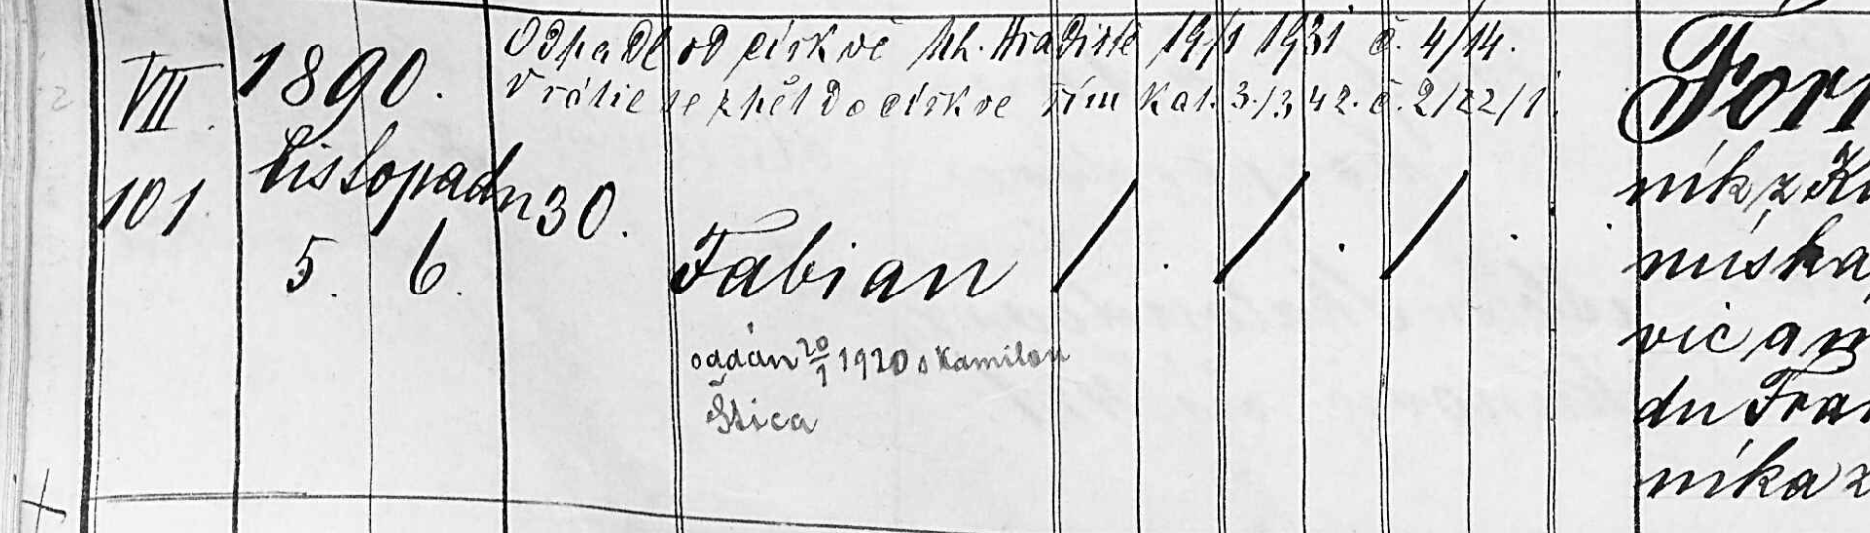 Odpadl od církvě Uh. Hradiště 19/1 1931 č. 4/14.
Vrátil se zpět do církve řím kat. 3./3 42. č. 2/22/1.
VII. 1890.
101 listopadu 30.
5. 6. Fabian / . / . / .
oddán 20/1 1920 s Kamilou
Štica
Forr
ník z Ku
níska,
vic a n
du Fran
níka z